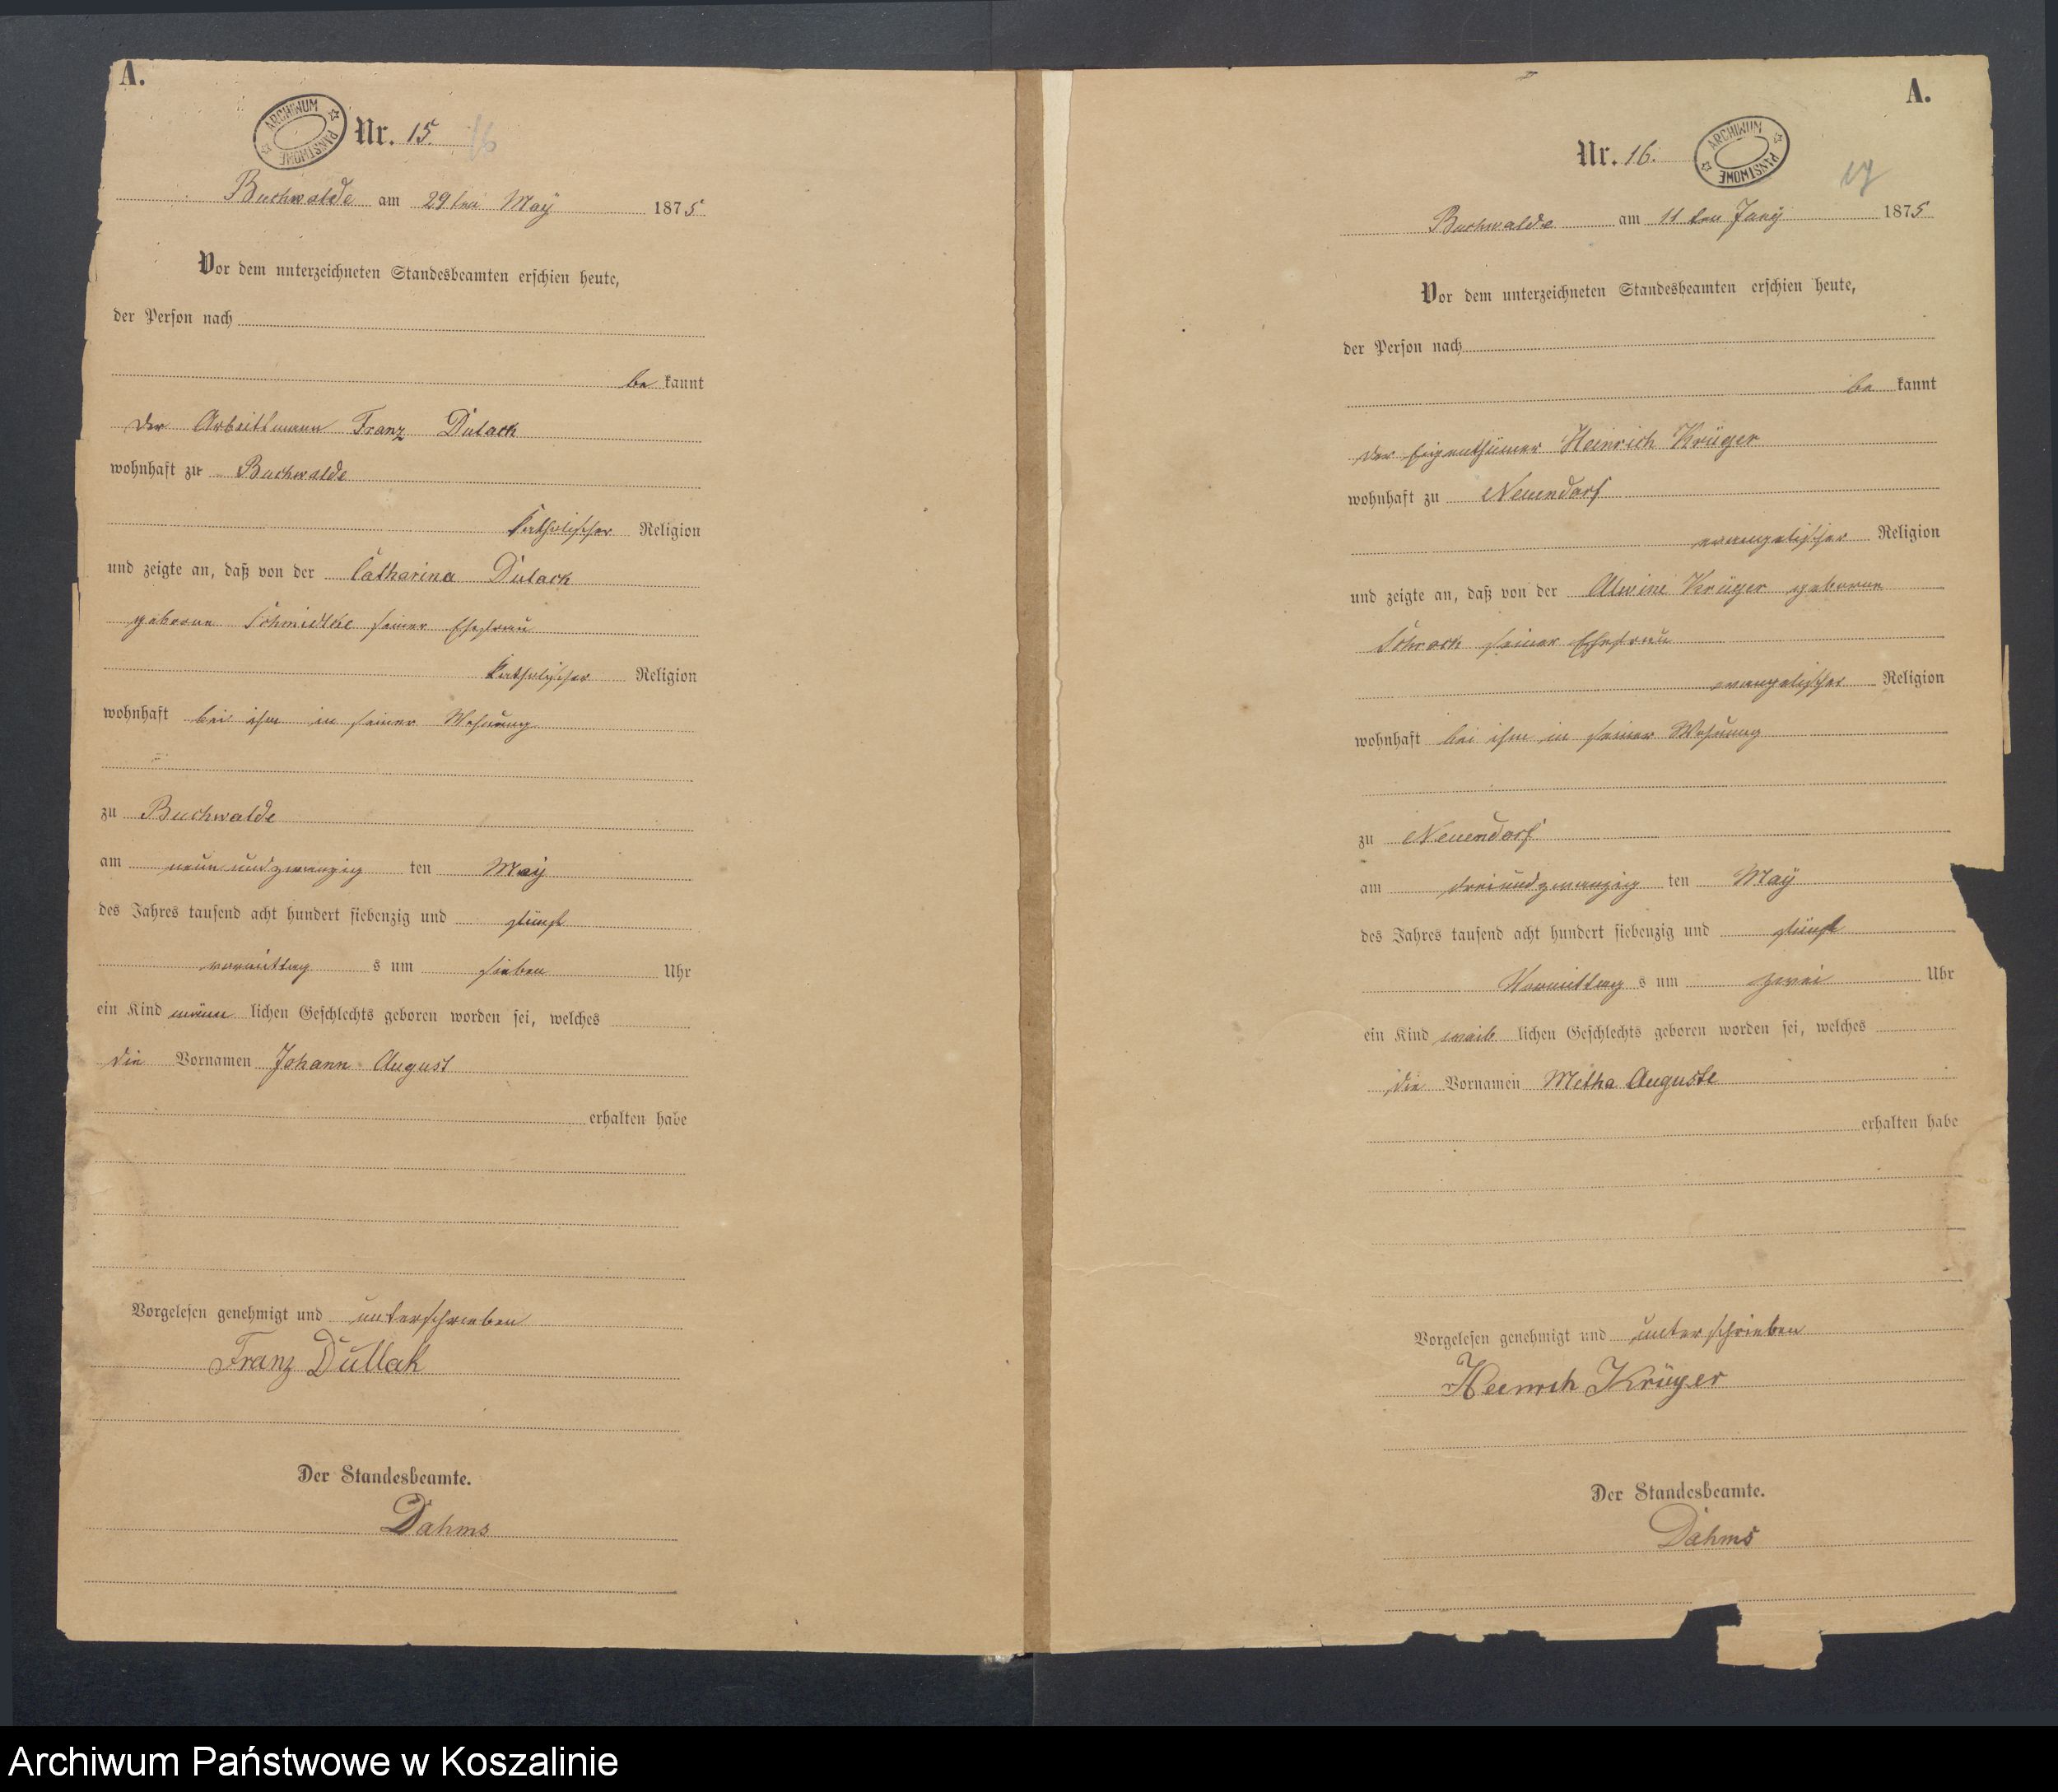 A.
ARCHIWUM PAŃSTWOWE
Nr. 15. 16
Buchwalde am 29ten May 1875
Vor dem unterzeichneten Standesbeamten erschien heute,
der Person nach
be kannt
der Arbeitsmann Franz Dulack
wohnhaft zu Buchwalde
katholischer Religion
und zeigte an, daß von der Catharina Dulack
geborene Schmidtke seiner Ehefrau
katholischer Religion
wohnhaft bei ihm in seiner Wohnung
zu Buchwalde
am neun und zwanzig ten May
des Jahres tausend acht hundert siebenzig und fünf
vormittag s um sieben Uhr
ein Kind männ lichen Geschlechts geboren worden sei, welches
die Vornamen Johann August
erhalten habe
Vorgelesen genehmigt und unterschrieben
Franz Dullak
Der Standesbeamte.
Dahms
A.
Nr. 16.
ARCHIWUM PAŃSTWOWE
17
Buchwalde am 11ten Juny 1875
Vor dem unterzeichneten Standesbeamten erschien heute,
der Person nach
be kannt
der Eigenthümer Heinrich Krüger
wohnhaft zu Neuendorf
evangelischer Religion
und zeigte an, daß von der Alwine Krüger geborene
Schrock seiner Ehefrau
evangelischer Religion
wohnhaft bei ihm in seiner Wohnung
zu Neuendorf
am drei und zwanzig ten May
des Jahres tausend acht hundert siebenzig und fünf
Vormittag s um zwei Uhr
ein Kind weib lichen Geschlechts geboren worden sei, welches
die Vornamen Metha Auguste
erhalten habe
Vorgelesen genehmigt und unterschrieben
Heinrich Krüger
Der Standesbeamte.
Dahms
Archiwum Państwowe w Koszalinie